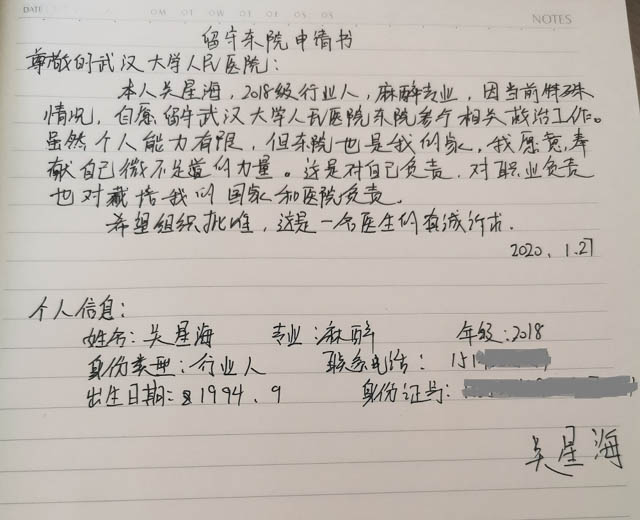 DATE
MO TU WE TH FR SA SU
NOTES
留守东院申请书
尊敬的武汉大学人民医院：
本人吴星海，2018级行业人，麻醉专业，因当前特殊
情况，自愿留守武汉大学人民医院东院参与相关救治工作。
虽然个人能力有限，但东院也是我的家，我愿意奉
献自己微不足道的力量。这是对自己负责，对职业负责
也对栽培我的国家和医院负责。
希望组织批准，这是一名医生的真诚许求.
2020. 1.27
个人信息：
姓名：吴星海 专业：麻醉 年级：2018
身份类型：行业人 联系电话：151
出生日期：1994.9 身份证号：
吴星海